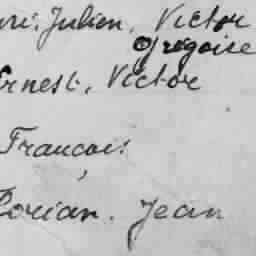 nri. Julien. Victor
Grégoire
Ernest. Victor
Francois
Florian. Jean